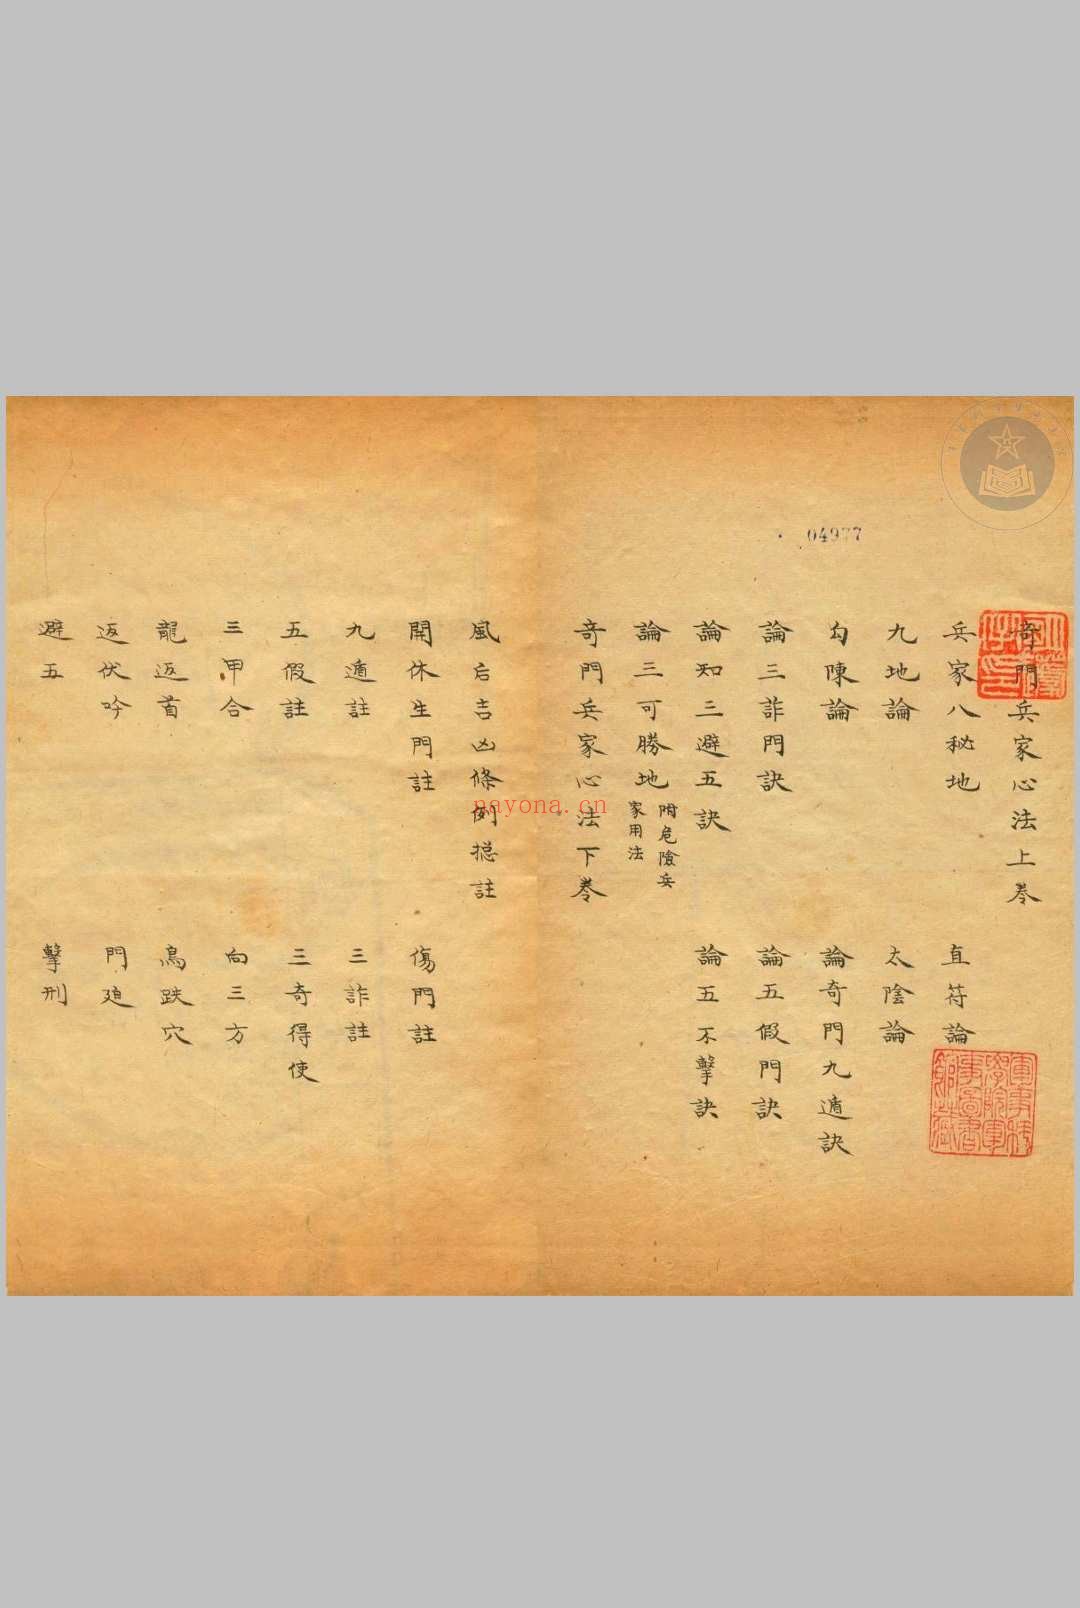 奇門兵家心法上卷
兵家八秘地 直符論
九地論 太陰論
勾陳論 論奇門九遁訣
論三詐門訣 論五假門訣
論知三避五訣 論五不擊訣
論三可勝地 附危險兵家用法
奇門兵家心法下卷
風后吉凶條例摠註
開休生門註 傷門註
九遁註 三詐註
五假註 三奇得使
三甲合 向三方
龍返首 鳥跌穴
返伏吟 門迫
避五 擊刑
04977
nayona.cn